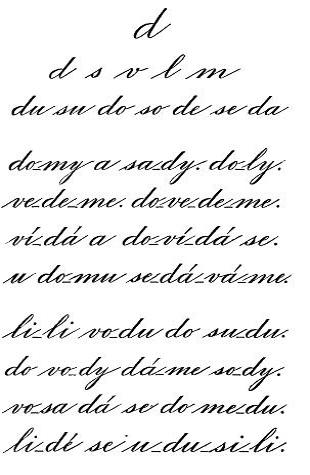 d
d s v l m
du su do so de se da
do-my a sa-dy. do-ly.
ve-de-me. do-ve-de-me.
ví-dá a do-ví-dá se.
u do-mu se-dá-vá-me.
li-li vo-du do su-du.
do vo-dy dá-me so-dy.
vo-sa dá se do me-du.
li-dé se u-du-si-li.